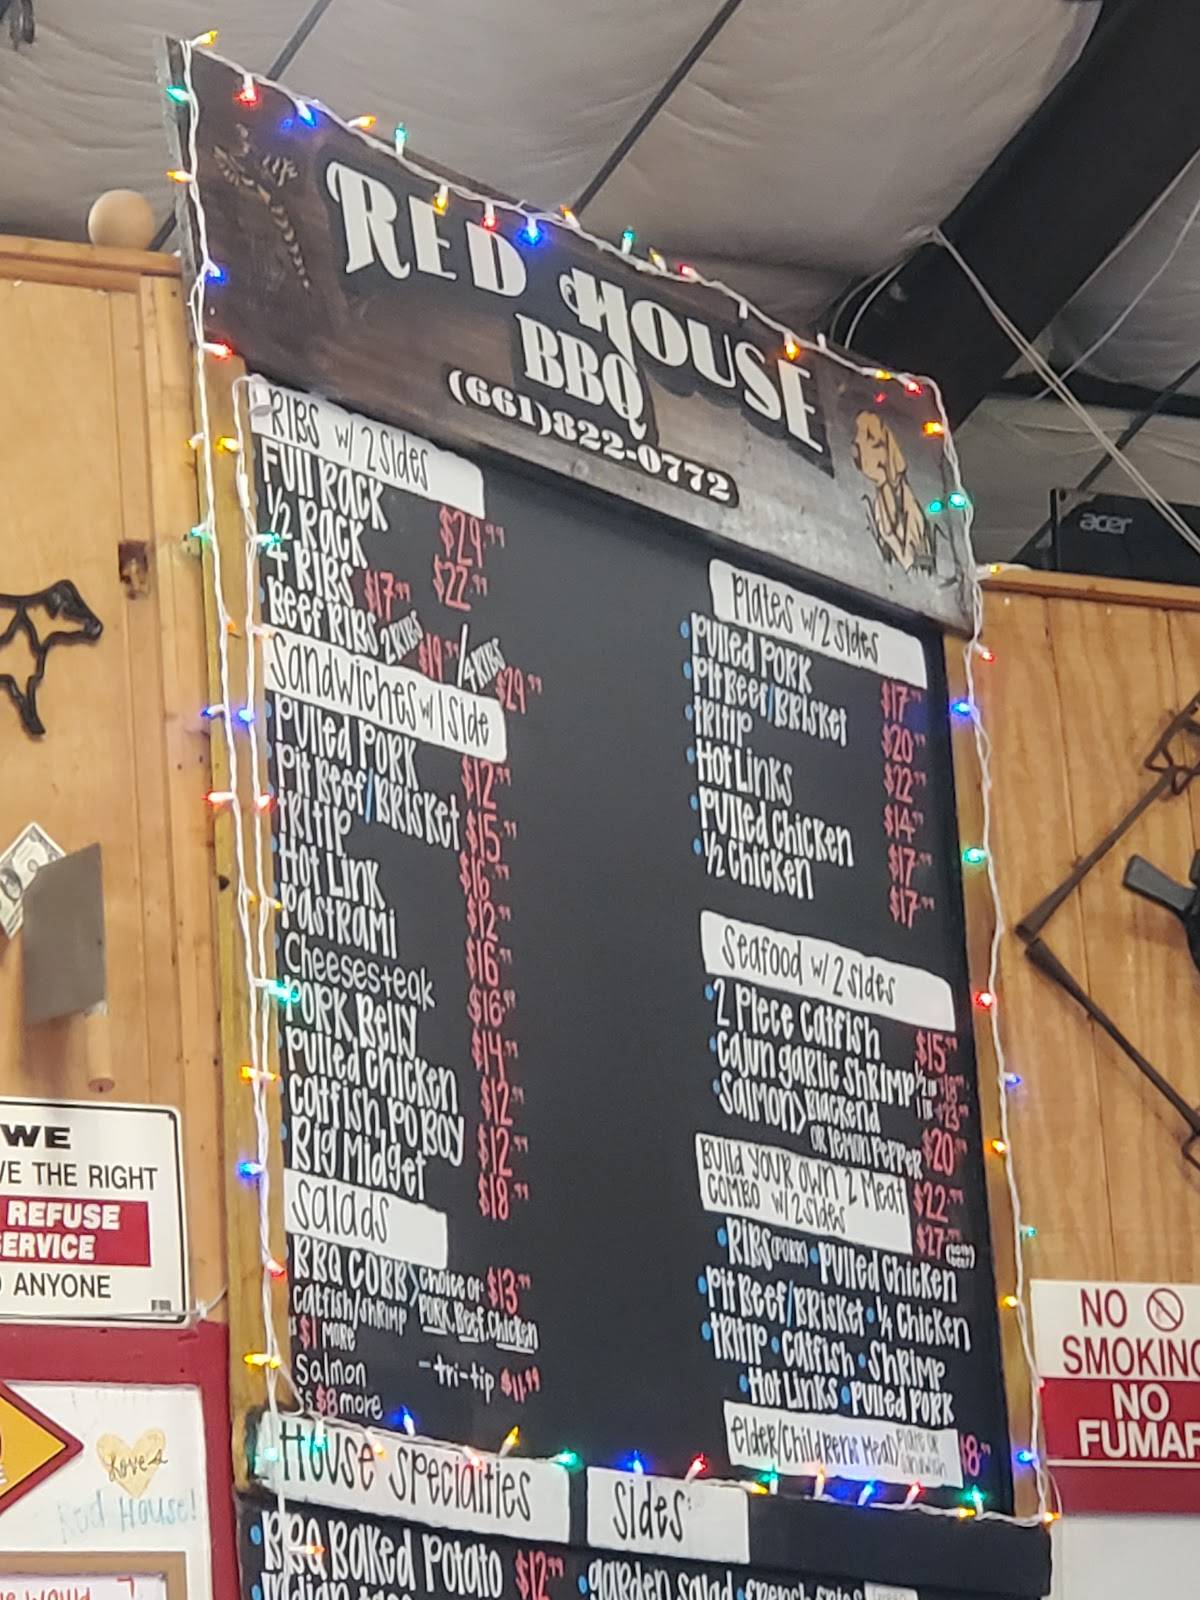 RED HOUSE
BBQ
(661)822-0772
RIBS w/ 2 Sides
Full Rack $29.99
1/2 Rack $22.99
4 Ribs $17.99
Beef Ribs 2 Ribs $19.99 / 4 Ribs $29.99
Sandwiches w/ 1 Side
Pulled Pork $12.99
Pit Beef/Brisket $15.99
Tritip $16.99
Hot Link $12.99
Pastrami $16.99
Cheesesteak $16.99
Pork Belly $14.99
Pulled Chicken $12.99
Catfish Po Boy $12.99
Big Midget $18.99
Salads
BBQ Cobb> Choice of: $13.99
Pork, Beef, Chicken
Catfish/Shrimp
$1 more
Salmon
is $8 more
-tri-tip
House Specialties
BBQ Baked Potato $12.99
Plates w/ 2 Sides
Pulled Pork $17.99
Pit Beef/Brisket $20.99
Tritip $22.99
Hot Links $14.99
Pulled Chicken $17.99
1/2 Chicken $17.99
Seafood w/ 2 Sides
2 Piece Catfish $15.99
Cajun Garlic Shrimp
Salmon> Blackend
or Lemon Pepper $20.99
Build Your Own 2 Meat $22.99
Combo w/ 2 Sides $27.99
Ribs (Pork) • Pulled Chicken
Pit Beef/Brisket • 1/4 Chicken
Tritip • Catfish • Shrimp
Hot Links • Pulled Pork
Elder/Childrens Meal> Plate or Sandwich $8.99
Sides:
garden salad
acer
WE
VE THE RIGHT
REFUSE
SERVICE
ANYONE
NO
SMOKING
NO
FUMAR
Love a
Red House!